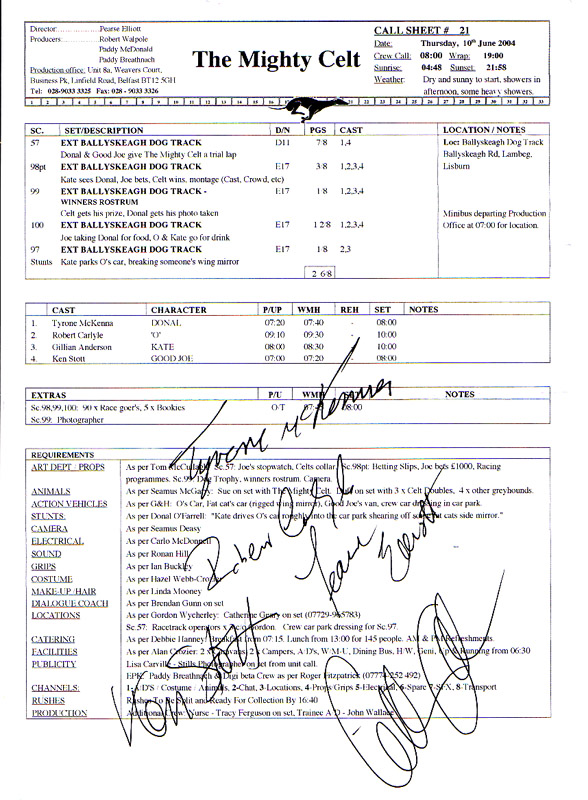 Director: Pearse Elliott
Producers: Robert Walpole
Paddy McDonald
Paddy Breathnach
Production office: Unit 8a, Weavers Court,
Business Pk, Linfield Road, Belfast BT12 5GH
Tel: 028-9033 3325 Fax: 028 - 9033 3326
The Mighty Celt
CALL SHEET # 21
Date: Thursday, 10th June 2004
Crew Call: 08:00 Wrap: 19:00
Sunrise: 04:48 Sunset: 21:58
Weather: Dry and sunny to start, showers in
afternoon, some heavy showers.
SC. SET/DESCRIPTION D/N PGS CAST LOCATION / NOTES
57 EXT BALLYSKEAGH DOG TRACK D11 7/8 1,4 Loc: Ballyskeagh Dog Track
Donal & Good Joe give The Mighty Celt a trial lap Ballyskeagh Rd, Lambeg,
98pt EXT BALLYSKEAGH DOG TRACK E17 3/8 1,2,3,4 Lisburn
Kate sees Donal, Joe bets, Celt wins, montage (Cast, Crowd, etc)
99 EXT BALLYSKEAGH DOG TRACK - E17 1/8 1,2,3,4
WINNERS ROSTRUM
Celt gets his prize, Donal gets his photo taken Minibus departing Production
100 EXT BALLYSKEAGH DOG TRACK E17 1 2/8 1,2,3,4 Office at 07:00 for location.
Joe taking Donal for food, O & Kate go for drink
97 EXT BALLYSKEAGH DOG TRACK E17 1/8 2,3
Stunts Kate parks O's car, breaking someone's wing mirror
2 6/8
CAST CHARACTER P/UP WMH REH SET NOTES
1. Tyrone McKenna DONAL 07:20 07:40 - 08:00
2. Robert Carlyle 'O' 09:10 09:30 - 10:00
3. Gillian Anderson KATE 08:00 08:30 - 10:00
4. Ken Stott GOOD JOE 07:00 07:20 - 08:00
EXTRAS P/U WMH NOTES
Sc.98,99,100: 90 x Race goer's, 5 x Bookies O/T 08:00
Sc.99: Photographer
Tyrone McKenna
REQUIREMENTS
ART DEPT / PROPS As per Tom McCullagh: Sc.57: Joe's stopwatch, Celts collar. Sc.98pt: Betting Slips, Joe bets £1000, Racing
programmes. Sc.99: Dog Trophy, winners rostrum. Camera.
ANIMALS As per Seamus McGarry: Sue on set with The Mighty Celt. on set with 3 x Celt Doubles, 4 x other greyhounds.
ACTION VEHICLES As per G&H: O's Car, Fat cat's car (rigged wing mirror), Good Joe's van, crew car driving in car park.
STUNTS. As per Donal O'Farrell: "Kate drives O's car roughly into the car park shearing off some fat cats side mirror."
CAMERA As per Seamus Deasy
ELECTRICAL As per Carlo McDonnell
SOUND As per Ronan Hill
GRIPS As per Ian Buckley
COSTUME As per Hazel Webb-Crozier
MAKE-UP /HAIR As per Linda Mooney
DIALOGUE COACH As per Brendan Gunn on set
LOCATIONS As per Gordon Wycherley: Catherine Geary on set
Sc.57: Racetrack operators x a/c Gordon. Crew car park dressing for Sc.97.
CATERING As per Debbie Hanney: Breakfast from 07:15. Lunch from 13:00 for 145 people. AM & PM Refreshments.
FACILITIES As per Alan Crozier: 2 x Caravans, 2 x Campers, A/D's, W/M-U, Dining Bus, H/W, Geni, Up & Running from 06:30
PUBLICITY Lisa Carville - Stills Photographer on set from unit call.
EPK: Paddy Breathnach & Digi beta Crew as per Roger Fitzpatrick (07774 252 492)
CHANNELS: 1-A/D'S / Costume / Animals, 2-Chat, 3-Locations, 4-Props/Grips 5-Electrical, 6-Spare 7-SFX, 8-Transport
RUSHES Rushes To Be Split and Ready For Collection By 16:40
PRODUCTION Additional Crew: Nurse - Tracy Ferguson on set, Trainee A/D - John Wallace
Robert Carlyle
Pearse Elliott
Ken Stott